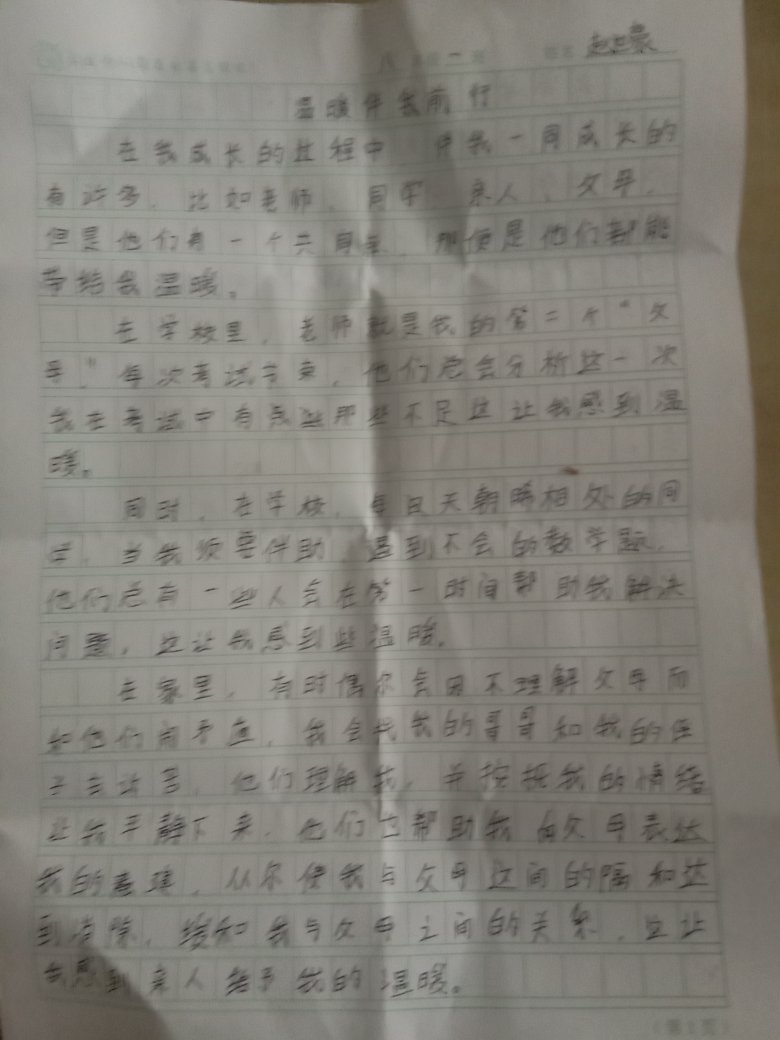 八 一
温暖伴我前行
在我成长的过程中 伴我一同成长的
有许多，比如老师，同学，亲人、父母，
但是他们有一个共同点，那便是他们都能
带给我温暖。
在学校里，老师就是我的第二个“父
母”每次考试结束，他们总会分析这一次
我在考试中有那些不足这让我感到温
暖。
同时，在学校，每日天朝暮相处的同
学，当我须要伴助 遇到不会的数学题，
他们总有一些人会在第一时间帮助我解决
问题，这让我感到些温暖。
在家里，有时偶尔会因不理解父母而
和他们闹矛盾，我会找我的哥哥和我的
他们理解我，并 我的情绪
让我平静下来，他们也帮助我 父母表达
我的意 ，从尔使我与父母这间的隔和达
到消除，缓和我与父母之间的关系，这让
我感到亲人给予我的温暖。